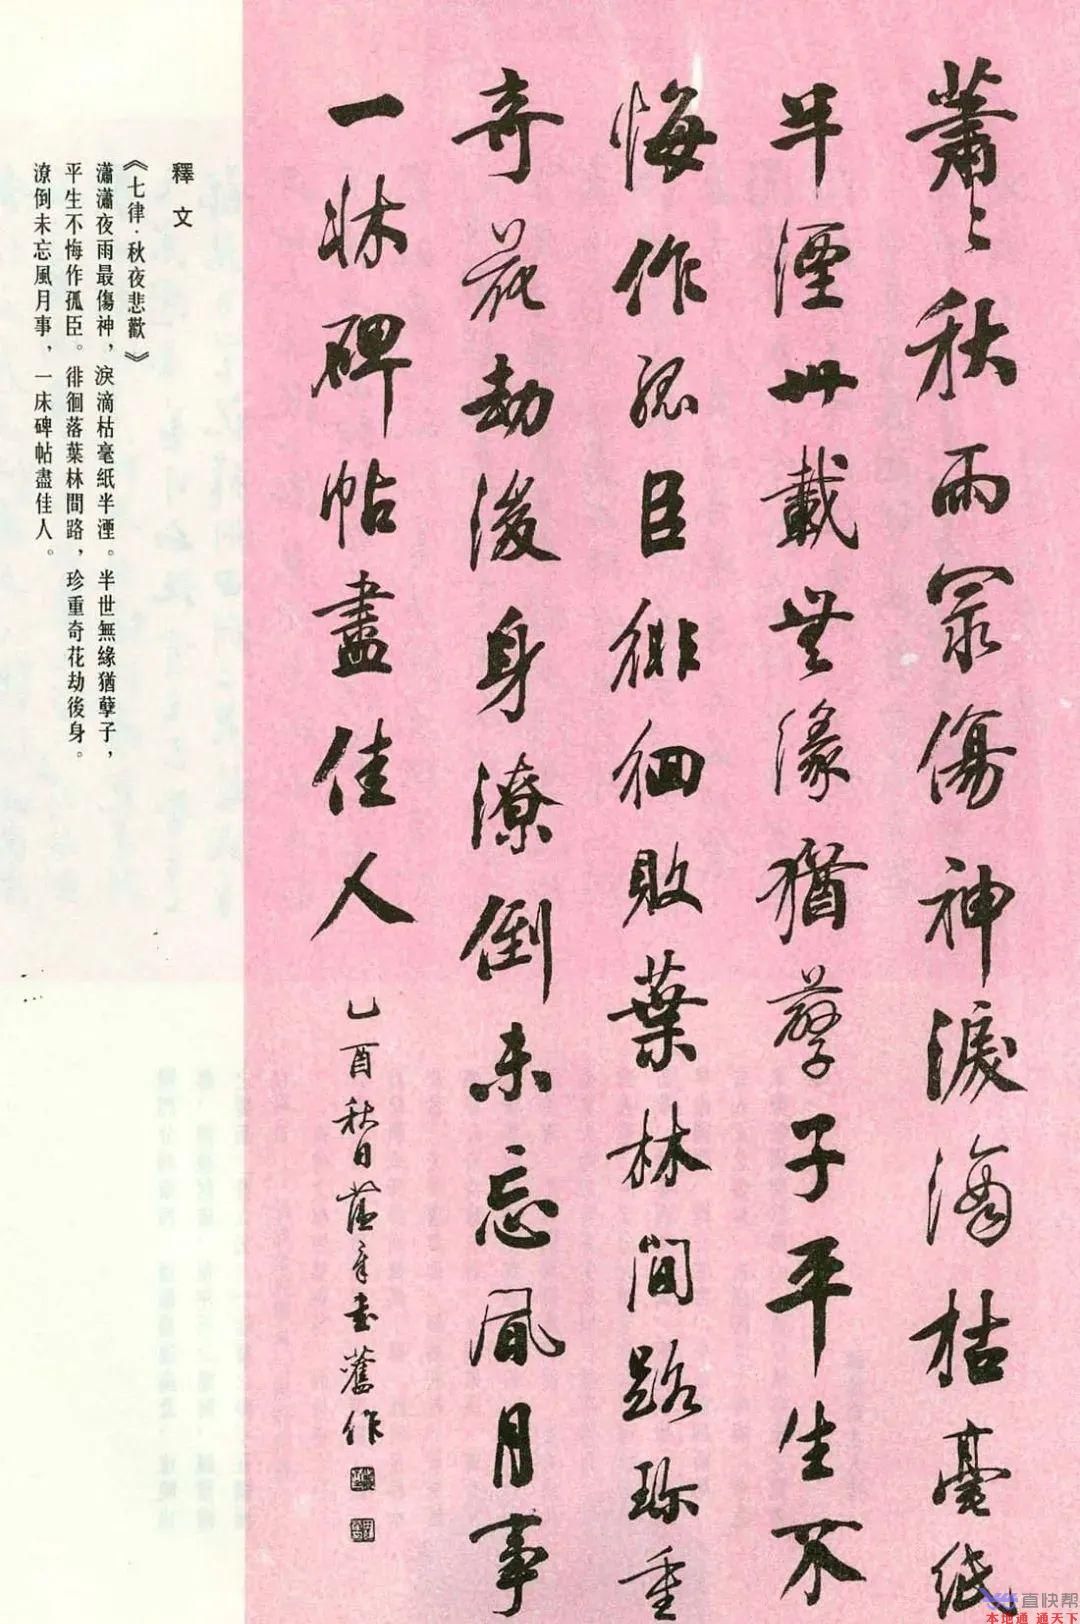 蕭〻秋雨冣傷神淚滴枯毫紙
半湮卅載無緣猶孽子平生不
悔作孤臣徘徊敗葉林間路珍重
奇花劫後身潦倒未忘風月事
一牀碑帖盡佳人
乙酉秋日蘊章書舊作
釋文
《七律·秋夜悲歡》
瀟瀟夜雨最傷神，淚滴枯毫紙半湮。半世無緣猶孽子，
平生不悔作孤臣。徘徊落葉林間路，珍重奇花劫後身。
潦倒未忘風月事，一床碑帖盡佳人。
直快帮
本地通 通天下